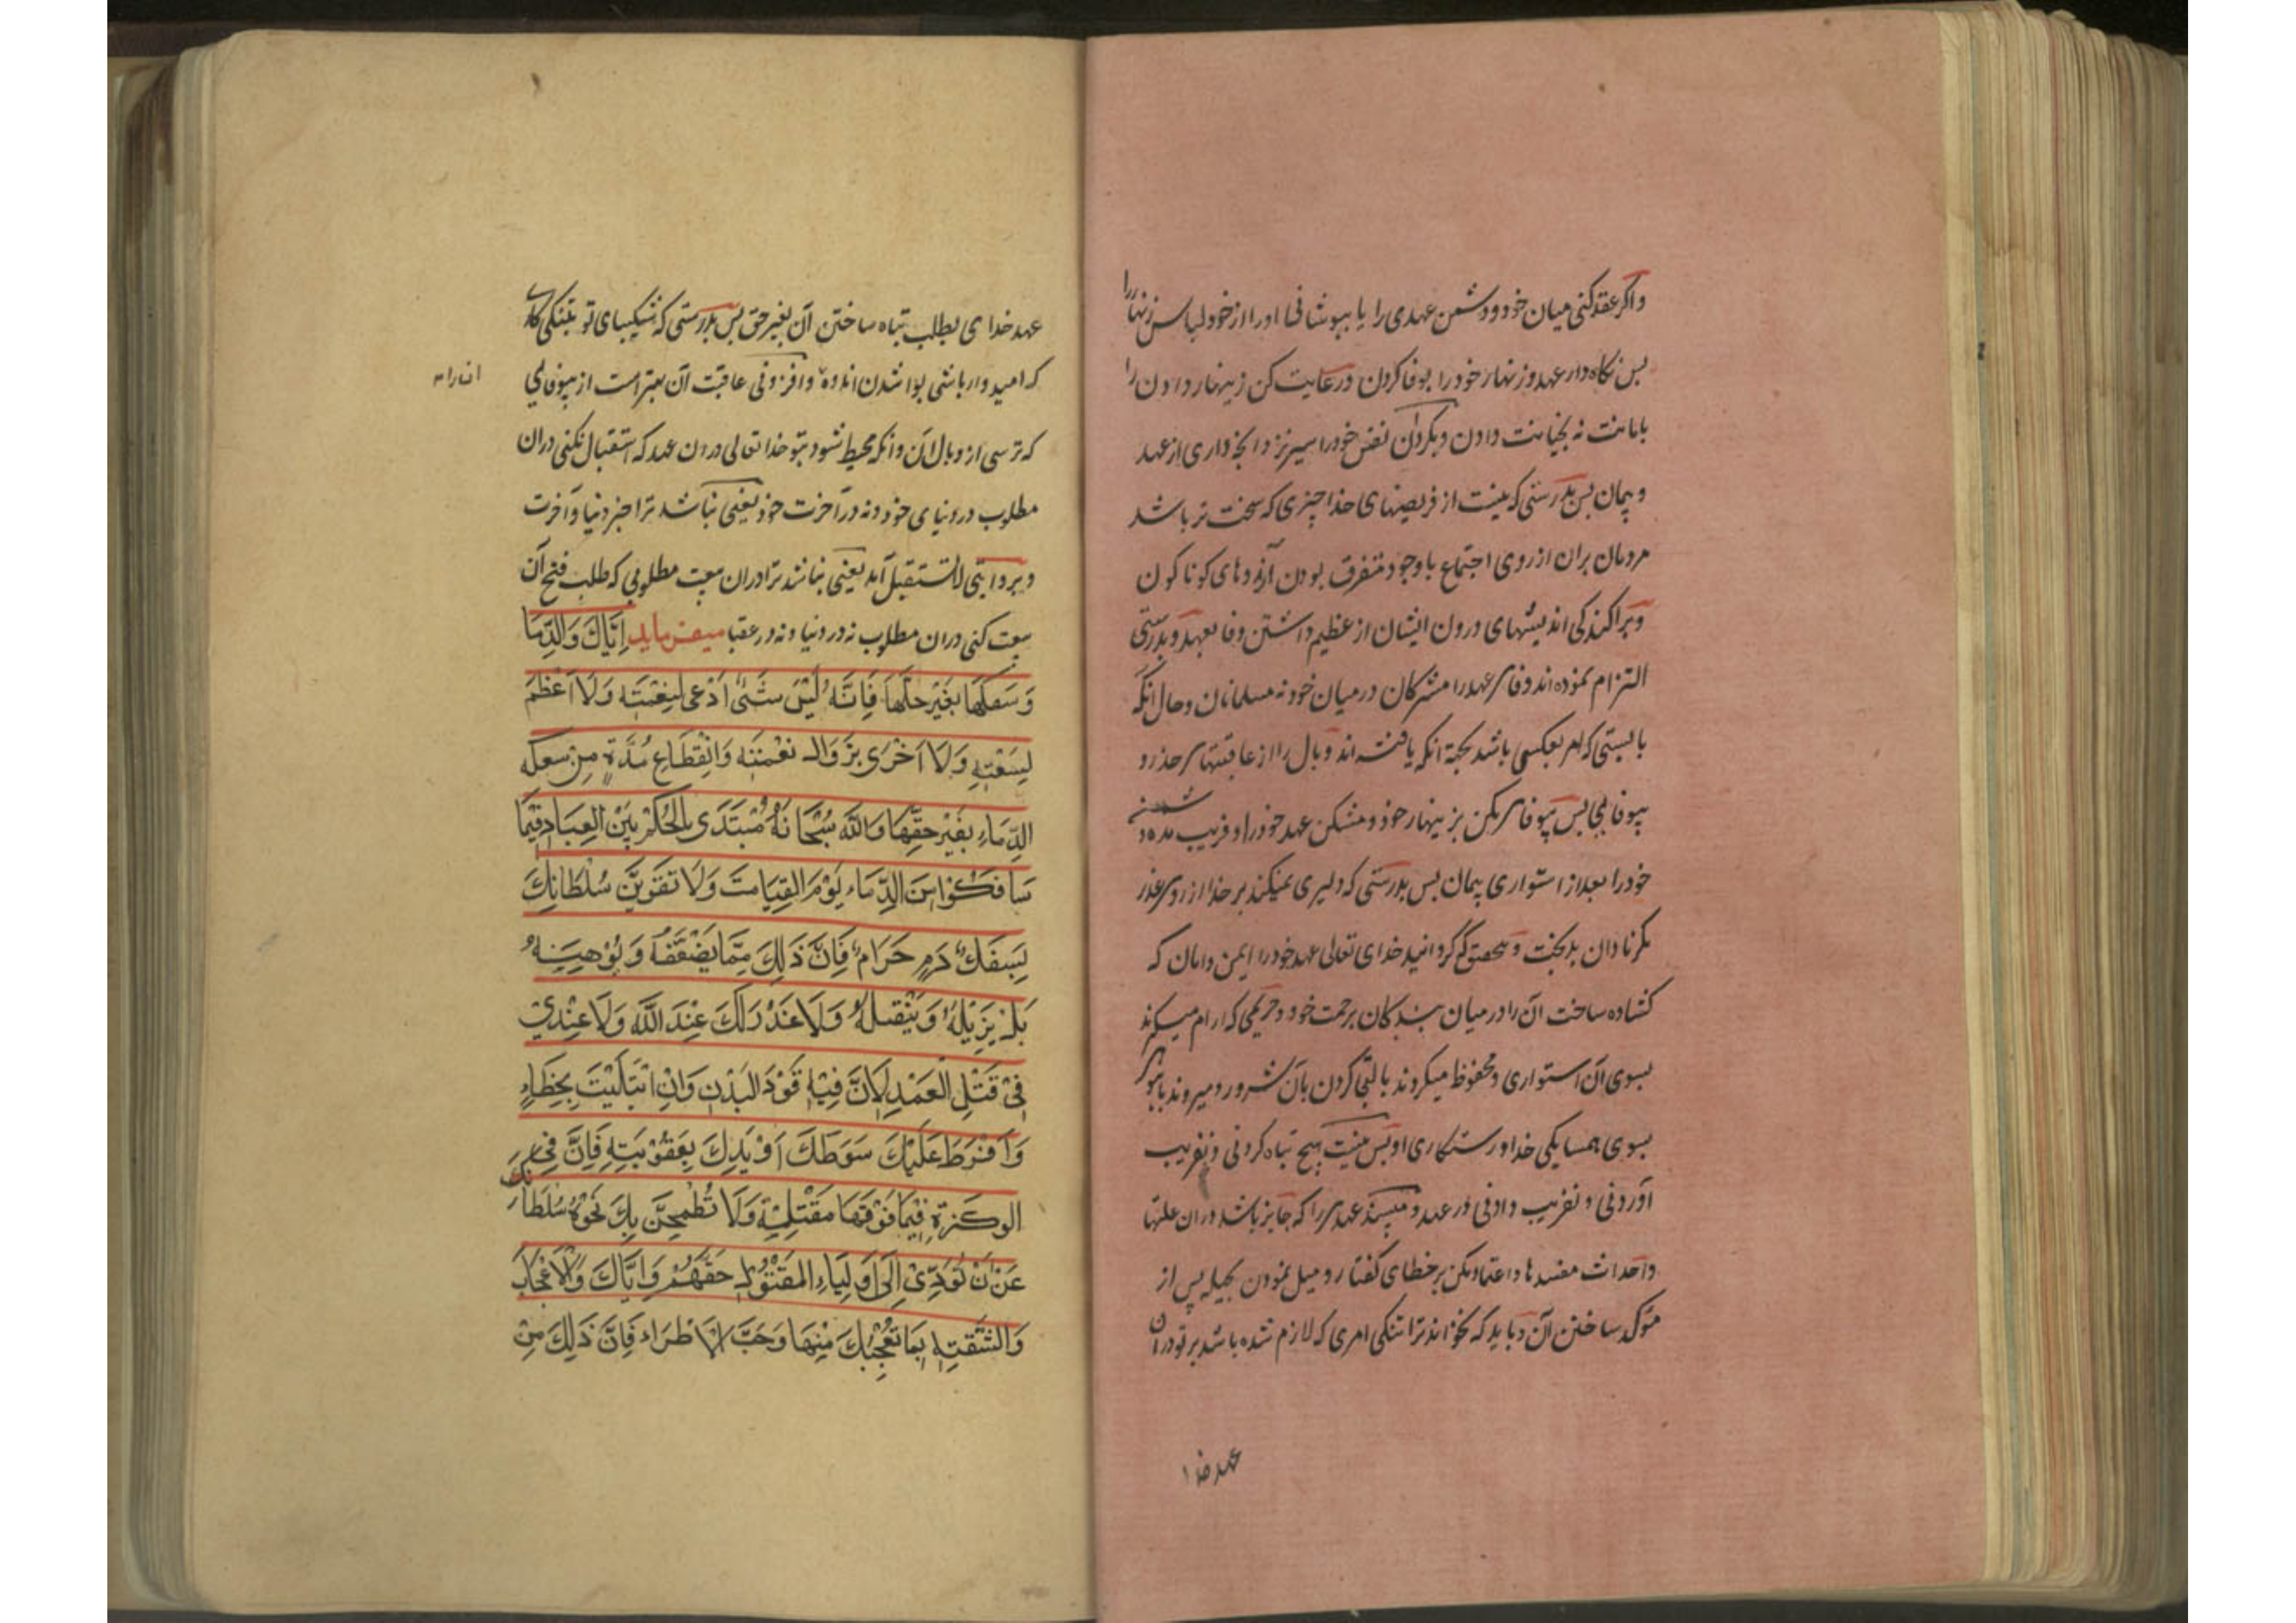 واکر عقد کنی میان خود و دشمن عهدی را یا بپوشانی او را از خود لباس زنهار را
بس نکاه دار عهد و زنهار خود را بوفا کردن و رعایت کن زینهار دادن را
بامانت نه بخیانت دادن و بکردان نفس خود را سپر نزد انج داری از عهد
و پیمان بس بدرستی که نیست از فریضهای خدا چیزی که سخت تر باشد
مردمان بران از روی اجتماع با وجود متفرق بودن آرزوهای کوناکون
و پراکندکی اندیشهای درون ایشان از عظیم داشتن وفا بعهد و بدرستی
التزام نموده اند وفاء عهد را مشرکان در میان خود نه مسلمانان و حال انکه
بایستی که امر بعکس باشد بجهة انکه یافته اند وبال را از عاقبتهای حذر و
بیوفایی بس بیوفایی مکن بزینهار خود و مشکن عهد خود را و فریب مده دشمن
خود را بعد از استواری پیمان بس بدرستی که دلیری نمیکند بر خدا از روی عذر
مکر نادان بدبخت و بتحقیق که کردانید خدای تعالی عهد خود را ایمن و امان که
کشاده ساخت آن را در میان بندکان برحمت خود و حریمی که ارام میکیرند
بسوی آن استواری و محفوظ میکردند بالتجا کردن بآن شرور و میروند بانبوهی
بسوی همسایکی خدا و رستکاری او بس نیست هیچ تباه کردنی و نفریب
آوردنی و نفریب دادنی در عهد و مبند عهدی را که جایز باشد دران علتها
و احداث مفسدها و اعتماد مکن بر خطای کفتار و میل نمودن بحیله پس از
مؤکد ساختن آن و باید که نخواند ترا تنکی امری که لازم شده باشد بر تو دران
عهد خدا
عهد خدای بطلب تباه ساختن آن بغیر حق بس بدرستی که شکیبای تو بتنکی کاری
که امیدوار باشی بوا شدن اندوه و افزونی عاقبت آن بهتر است از بیوفایی
انرا
که ترسی از وبال آن و آنکه محیط شود بتو خدا تعالی دران عهد که استقبال نکنی دران
مطلوب در دنیای خود و نه در آخرت خود یعنی نباشد ترا جز دنیا و آخرت
و بروایتی لا تستقبل آمد یعنی نمانند ترا دران بیعت مطلوبی که طلب فتح آن
بیعت کنی دران مطلوب نه در دنیا و نه در عقبا میفرماید اِیَّاكَ وَ الدِّمَا
وَ سَفكَهَا بِغَیْرِ حِلِّهَا فَاِنَّهُ لَیْسَ شَئٌ اَدْعَی لِنِقْمَتِهٍ وَلَا اَعْظَمَ
لِتَبْعَتِهٍ وَلَا اَحْرَی بِزَوَالِ نِعْمَتَهٍ وَانْقِطَاعِ مُدَّةٍ مِنْ سَفْكِ
الدِّمَاءِ بِغَیْرِ حَقِّهَا وَاللّٰهُ سُبْحَانَهُ مُبْتَدَی بِالْحُکْمِ بَیْنَ الْعِبَادِ فِیْمَا
تَسَافَکُوْا مِنَ الدِّمَاءِ یَوْمَ الْقِیَامَتَ وَلَا تَقَوِّیَنَّ سُلْطَانَكَ
بِسَفْكِ دَمٍ حَرَامٍ فَاِنَّ ذَلِكَ مِمَّا یُضَعِّفُهُ وَ یُوْهِیْنَهُ
بَلْ یُزِیْلُهُ وَ یَنْقُلُهُ وَلَا عُذْرَ لَكَ عِنْدَ اللّٰهِ وَلَا عِنْدِیْ
فِیْ قَتْلِ الْعَمَدِ لِاَنَّ فِیْهِ قَوَدَ الْبَدَنِ وَاِنِ ابْتَلَیْتَ بِخَطَاءٍ
وَاَفْرَطَ عَلَیْكَ سَوْطَكَ اَوْ یَدِكَ بِعَقُوْبَتِهِ فَاِنَّ فِی
الوَکْزَةِ فِیْمَا فَوْقَهَا مَقْتَلِیَّةٍ وَلَا تُطْمِحَنَّ بِكَ نَخْوَةُ سُلْطَانِكَ
عَنْ اَنْ تُوَدِّیْ اِلَی اَوْلِیَاءِ الْمَقْتُوْلِ حَقَّهُمْ وَ اِیَّاكَ وَ الْاِعْجَابَ
وَالثِّقَتِهِ بِمَا تُعْجِبُكَ مِنْهَا وَحُبَّ الْاِطْرَاءِ فَاِنَّ ذَلِكَ مِنْ